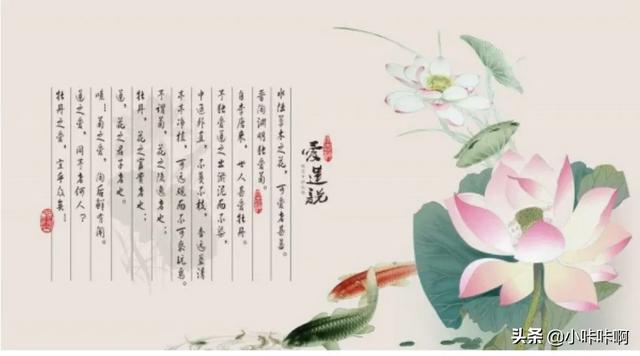 愛蓮說
水陆草木之花,可爱者甚蕃。
晋陶渊明独爱菊。
自李唐来,世人甚爱牡丹。
予独爱莲之出淤泥而不染,
中通外直,不蔓不枝,香远益清
亭亭净植,可远观而不可亵玩焉。
予谓菊,花之隐逸者也;
牡丹,花之富贵者也;
莲,花之君子者也。
噫!菊之爱,陶后鲜有闻。
莲之爱,同予者何人?
牡丹之爱,宜乎众矣!
头条 @小咔咔啊